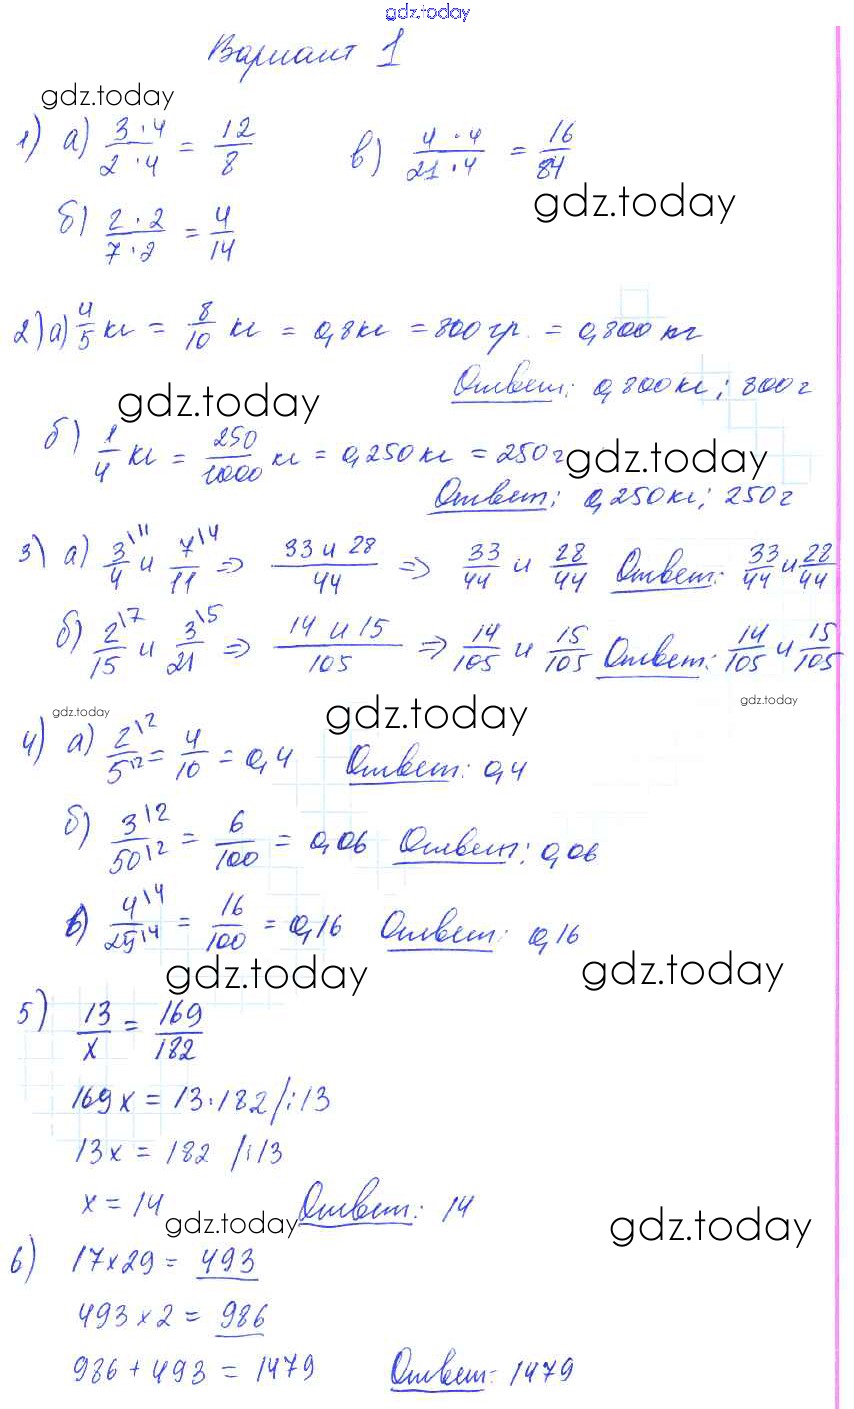 gdz.today
Вариант 1
gdz.today
1) а) 3·4/2·4 = 12/8 в) 4·4/21·4 = 16/84
gdz.today
б) 2·2/7·2 = 4/14
2) а) 4/5 кг = 8/10 кг = 0,8кг = 800гр. = 0,800 кг
Ответ: 0,800кг; 800г
gdz.today
б) 1/4 кг = 250/1000 кг = 0,250кг = 250г
gdz.today
Ответ: 0,250кг; 250г
3) а) 3\11/4 и 7\4/11 => 33 и 28/44 => 33/44 и 28/44 Ответ: 33/44 и 28/44
б) 2\7/15 и 3\5/21 => 14 и 15/105 => 14/105 и 15/105 Ответ: 14/105 и 15/105
gdz.today
gdz.today gdz.today
4) а) 2\2/5\2 = 4/10 = 0,4 Ответ: 0,4
б) 3\2/50\2 = 6/100 = 0,06 Ответ: 0,06
в) 4\4/25\4 = 16/100 = 0,16 Ответ: 0,16
gdz.today gdz.today
5) 13/x = 169/182
169x = 13·182 /:13
13x = 182 /:13
x = 14 Ответ: 14
gdz.today gdz.today
6) 17×29 = 493
493×2 = 986
986 + 493 = 1479 Ответ: 1479